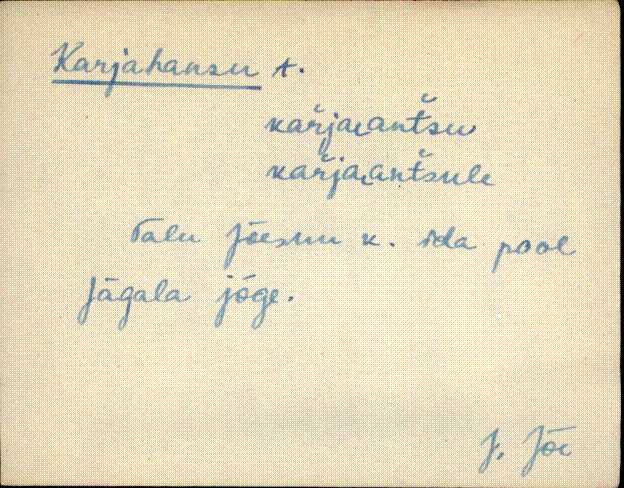 Karjahansu t.
kaŕja‿antšu
kaŕja‿antšule
Talu Jõesuu k. ida pool
Jägala jõge.
J. Jõe